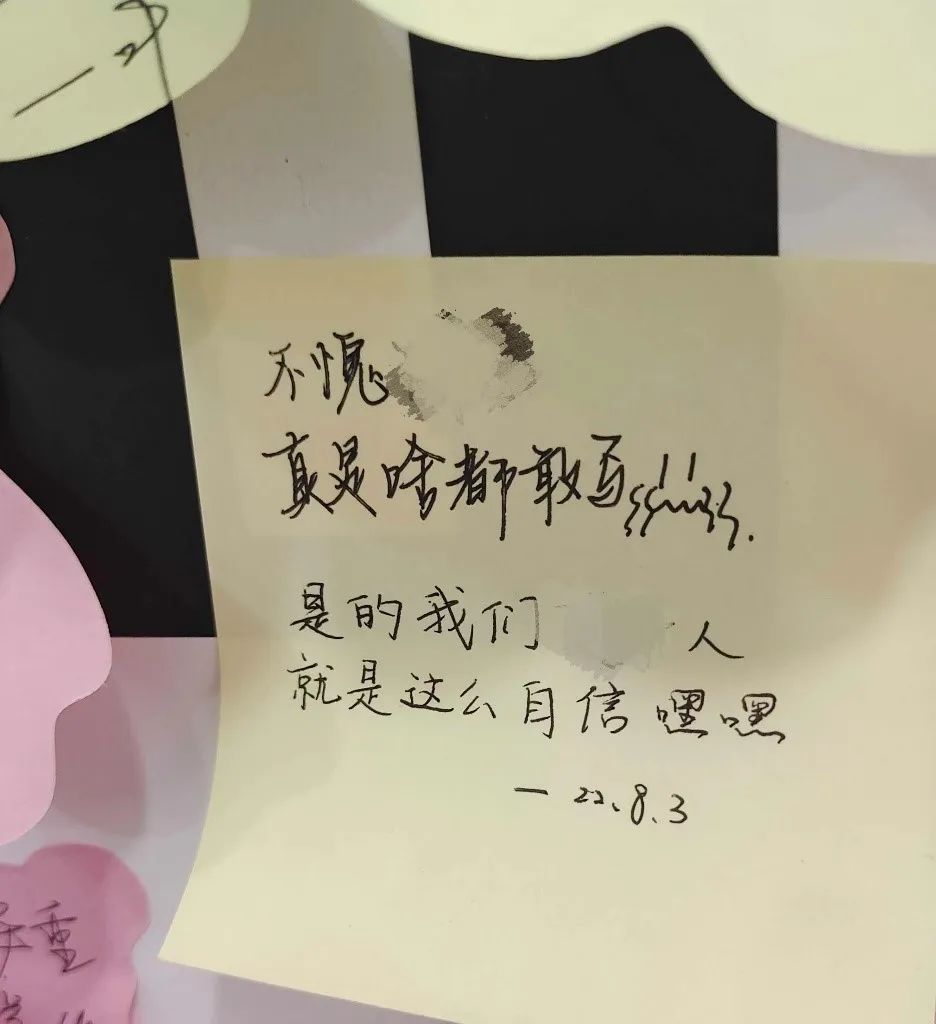 不愧
真是啥都敢写
是的我们 人
就是这么自信嘿嘿
— 22.8.3
重